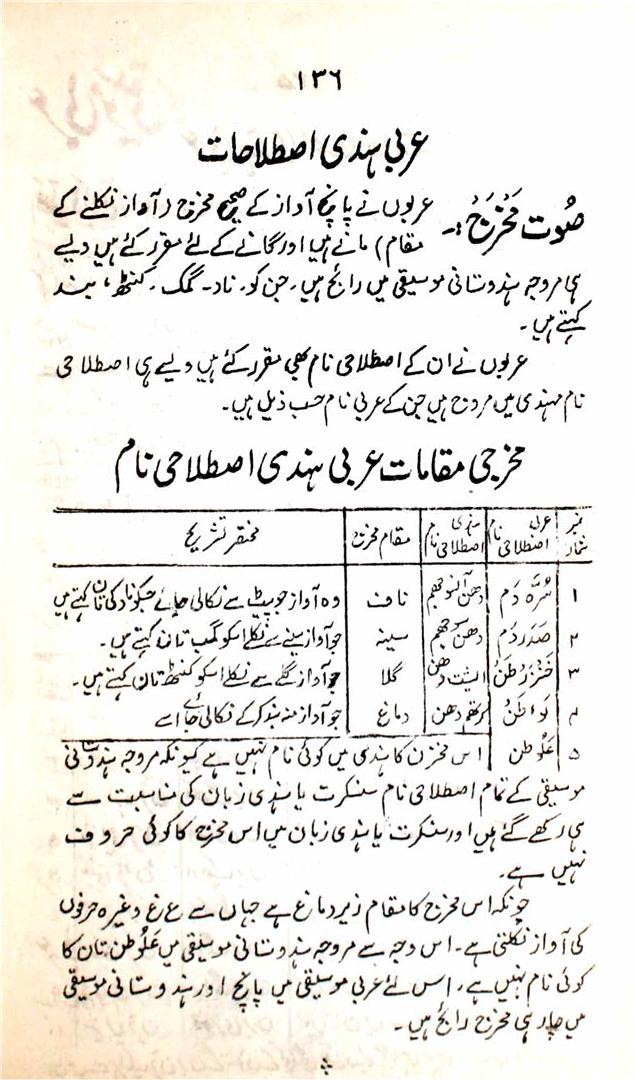 ۱۳۶
عربی ہندی اصطلاحات
صُوت مَخْرَج :۔ عربوں نے پانچ آواز کے صحیح مخرج (آواز نکلنے کے
مقام) مانے ہیں اور گانے کے لئے مقرر کئے ہیں ویسے
ہی مروجہ ہندوستانی موسیقی میں رائج ہیں۔ جن کو۔ ناد۔ گمک۔ کنٹھ، بند
کہتے ہیں۔
عربوں نے ان کے اصطلاحی نام بھی مقرر کئے ہیں ویسے ہی اصطلاحی
نام ہندی میں مروج ہیں جن کے عربی نام حسب ذیل ہیں۔
مخرجی مقامات عربی ہندی اصطلاحی نام
نمبر شمار عربی اصطلاحی نام ہندی اصطلاحی نام مقام مخرج مختصر تشریح
۱ سُرَّہ دَم ناف وہ آواز جو پیٹ سے نکالی جائے جسکو ناد کی تان کہتے ہیں
۲ صَدَر دَم سینہ جو آواز سینے سے نکلے اسکو گمک تان کہتے ہیں۔
۳ گلا جو آواز گلے سے نکلے اسکو کنٹھ تان کہتے ہیں۔
۴ دماغ جو آواز منہ بند کرکے نکالی جائے اسے
۵ عَلُوطن اس مخرن کا ہندی میں کوئی نام نہیں ہے کیونکہ مروجہ ہندوستانی
موسیقی کے تمام اصطلاحی نام سنسکرت یا ہندی زبان کی مناسبت سے
ہی رکھے گئے ہیں اور سنسکرت یا ہندی زبان میں اس مخرج کا کوئی حروف
نہیں ہے۔
چونکہ اس مخرج کا مقام زیر دماغ ہے جہاں سے ع غ وغیرہ حرفوں
کی آواز نکلتی ہے۔ اس وجہ سے مروجہ ہندوستانی موسیقی میں عَلُوطن تان کا
کوئی نام نہیں ہے، اس لئے عربی موسیقی میں پانچ اور ہندوستانی موسیقی
میں چار ہی مخرج رائج ہیں۔